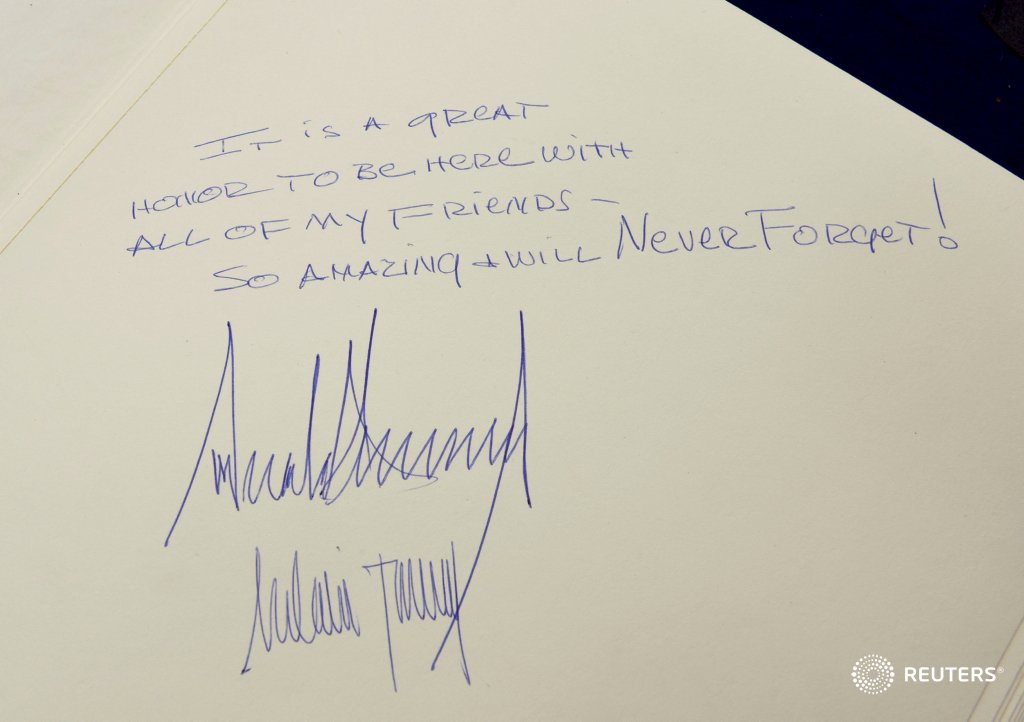 IT IS A GREAT
HONOR TO BE HERE WITH
ALL OF MY FRIENDS -
SO AMAZING + WILL NEVER FORGET!
Melania Trump
REUTERS®